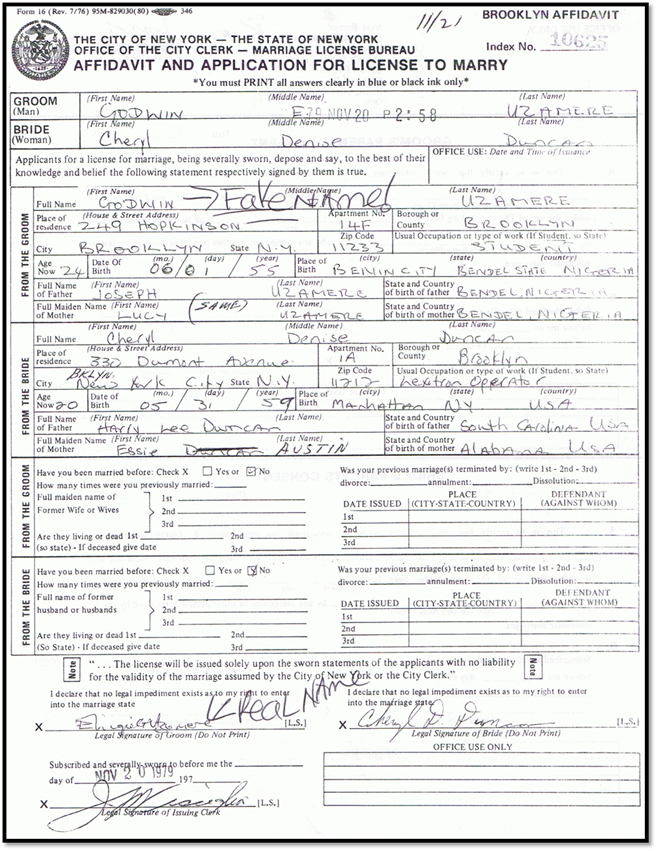 Form 16 (Rev. 7/76) 95M-829030(80) 346
11/21
BROOKLYN AFFIDAVIT
THE CITY OF NEW YORK — THE STATE OF NEW YORK
OFFICE OF THE CITY CLERK – MARRIAGE LICENSE BUREAU
Index No. 10625
AFFIDAVIT AND APPLICATION FOR LICENSE TO MARRY
*You must PRINT all answers clearly in blue or black ink only*
GROOM (Man) (First Name) GODWIN (Middle Name) E (Last Name) UZAMERE
'79 NOV 20 P2:58
BRIDE (Woman) (First Name) Cheryl (Middle Name) Denise (Last Name) Duncan
Applicants for a license for marriage, being severally sworn, depose and say, to the best of their
knowledge and belief the following statement respectively signed by them is true.
OFFICE USE: Date and Time of Issuance
FROM THE GROOM
Full Name (First Name) GODWIN → Fake NAME! (Middle Name) (Last Name) UZAMERE
Place of residence (House & Street Address) 249 HOPKINSON Apartment No. 14F Borough or County BROOKLYN
City BROOKLYN State N.Y. Zip Code 11233 Usual Occupation or type of work (If Student, so State) STUDENT
Age Now 24 Date Of Birth (mo.) 06 / (day) 01 / (year) 55 Place of Birth (city) BENIN CITY (state) BENDEL STATE (country) NIGERIA
Full Name of Father (First Name) JOSEPH (Last Name) UZAMERE State and Country of birth of father BENDEL, NIGERIA
Full Maiden Name of Mother (First Name) LUCY (SAME) (Last Name) UZAMERE State and Country of birth of mother BENDEL, NIGERIA
FROM THE BRIDE
Full Name (First Name) Cheryl Middle Name Denise (Last Name) Duncan
Place of residence (House & Street Address) 330 Dumont Avenue Apartment No. 1A Borough or County Brooklyn
City BKLYN. New York City State N.Y. Zip Code 11212 Usual Occupation or type of work (If Student, so State) Lextron Operator
Age Now 20 Date Of Birth (mo.) 05 / (day) 31 / (year) 59 Place of Birth (city) Manhattan (state) NY (country) USA
Full Name of Father (First Name) Harry Lee (Last Name) Duncan State and Country of birth of father South Carolina USA
Full Maiden Name of Mother (First Name) Essie Duncan (Last Name) AUSTIN State and Country of birth of mother Alabama USA
FROM THE GROOM
Have you been married before: Check X Yes or No
How many times were you previously married:
Full maiden name of Former Wife or Wives 1st 2nd 3rd
Are they living or dead 1st 2nd
(so state) - If deceased give date 3rd
Was your previous marriage(s) terminated by: (write 1st - 2nd - 3rd)
divorce: annulment: Dissolution:
DATE ISSUED PLACE (CITY-STATE-COUNTRY) DEFENDANT (AGAINST WHOM)
1st
2nd
3rd
FROM THE BRIDE
Have you been married before: Check X Yes or No
How many times were you previously married:
Full name of former husband or husbands 1st 2nd 3rd
Are they living or dead 1st 2nd
(So State) - If deceased give date 3rd
Was your previous marriage(s) terminated by: (write 1st - 2nd - 3rd)
divorce: annulment: Dissolution:
DATE ISSUED PLACE (CITY-STATE-COUNTRY) DEFENDANT (AGAINST WHOM)
1st
2nd
3rd
Note
" . . . The license will be issued solely upon the sworn statements of the applicants with no liability
for the validity of the marriage assumed by the City of New York or the City Clerk."
Note
I declare that no legal impediment exists as to my right to enter
into the marriage state
REAL NAME
X [L.S.]
Legal Signature of Groom (Do Not Print)
I declare that no legal impediment exists as to my right to enter
into the marriage state
X Cheryl D. Duncan [L.S.]
Legal Signature of Bride (Do Not Print)
Subscribed and severally sworn to before me the
day of NOV 20 1979 197
X [L.S.]
Legal Signature of Issuing Clerk
OFFICE USE ONLY